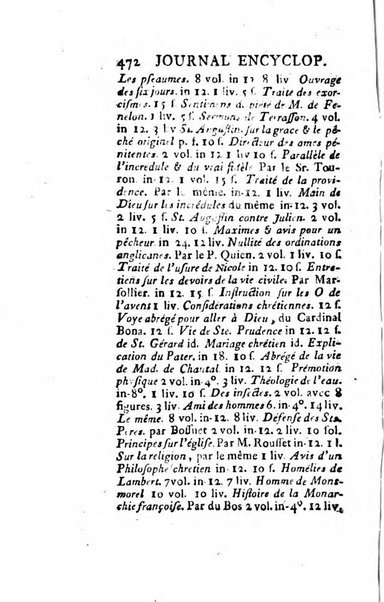 472 JOURNAL ENCYCLOP.
Les pseaumes. 8 vol. in 12 8 liv Ouvrage
des six jours. in 12. 1 liv. 5 ſ. Traité des exor-
cismes. 15 ſ Sentimens de piété de M. de Fe-
nelon. 1 liv. 5 ſ. Sermons de Terrasson. 4 vol.
in 12. 3 liv St. Augustin sur la grace & le pé-
ché originel p. f. 10 ſ. Directeur des ames pé-
nitentes. 2 vol. in 12 1 liv 10 ſ. Parallèle de
l'incredule & du vrai fidèle Par le Sr. Tou-
ron. in 12. 1 liv. 15 ſ. Traité de la provi-
dence. Par le même. in-12. 1 liv. Main de
Dieu sur les incrédules du même in-12. 3 vol.
2 liv. 5 ſ. St. Augustin contre Julien. 2 vol.
in 12. 1 liv. 10 ſ. Maximes & avis pour un
pêcheur. in 24. 12 liv. Nullité des ordinations
anglicanes. Par le P. Quien. 2 vol. 1 liv. 10 ſ
Traité de l'usure de Nicole in 12. 10 ſ. Entre-
tiens sur les devoirs de la vie civile. Par Mar-
sollier. in 12. 15 ſ. Instruction sur les O de
l'avent 1 liv. Considérations chrétiennes. 12 ſ.
Voye abrégé pour aller à Dieu, du Cardinal
Bona. 12 ſ Vie de Ste. Prudence in 12. 12 ſ.
de St. Gérard id. Mariage chrétien id. Expli-
cation du Pater. in 18. 10 ſ. Abrégé de la vie
de Mad. de Chantal in 12. 12 ſ Prémotion
phisique 2 vol. in-4°. 3 liv. Théologie de l'eau.
in-8°. 1 liv. 10 ſ. Des insectes. 2 vol. avec 8
figures. 3 liv. Ami des hommes 6. in-4°. 14 liv.
Le même. 8 vol. in-12. 8 liv. Défense des Sts.
Pères. par Bossuet 2 vol. in 12. 2 liv. 10 sol.
Principes sur l'église. Par M. Rousset in 12. 1 l.
Sur la religion, par le même 1 liv. Avis d'un
Philosophe chretien in 12. 10 ſ. Homélies de
Lambert. 7 vol. in 12. 7 liv. Homme de Mons-
morel 10 vol. 10 liv. Histoire de la Monar-
chie françoise. Par du Bos 2 vol. in-4°. 12 liv.